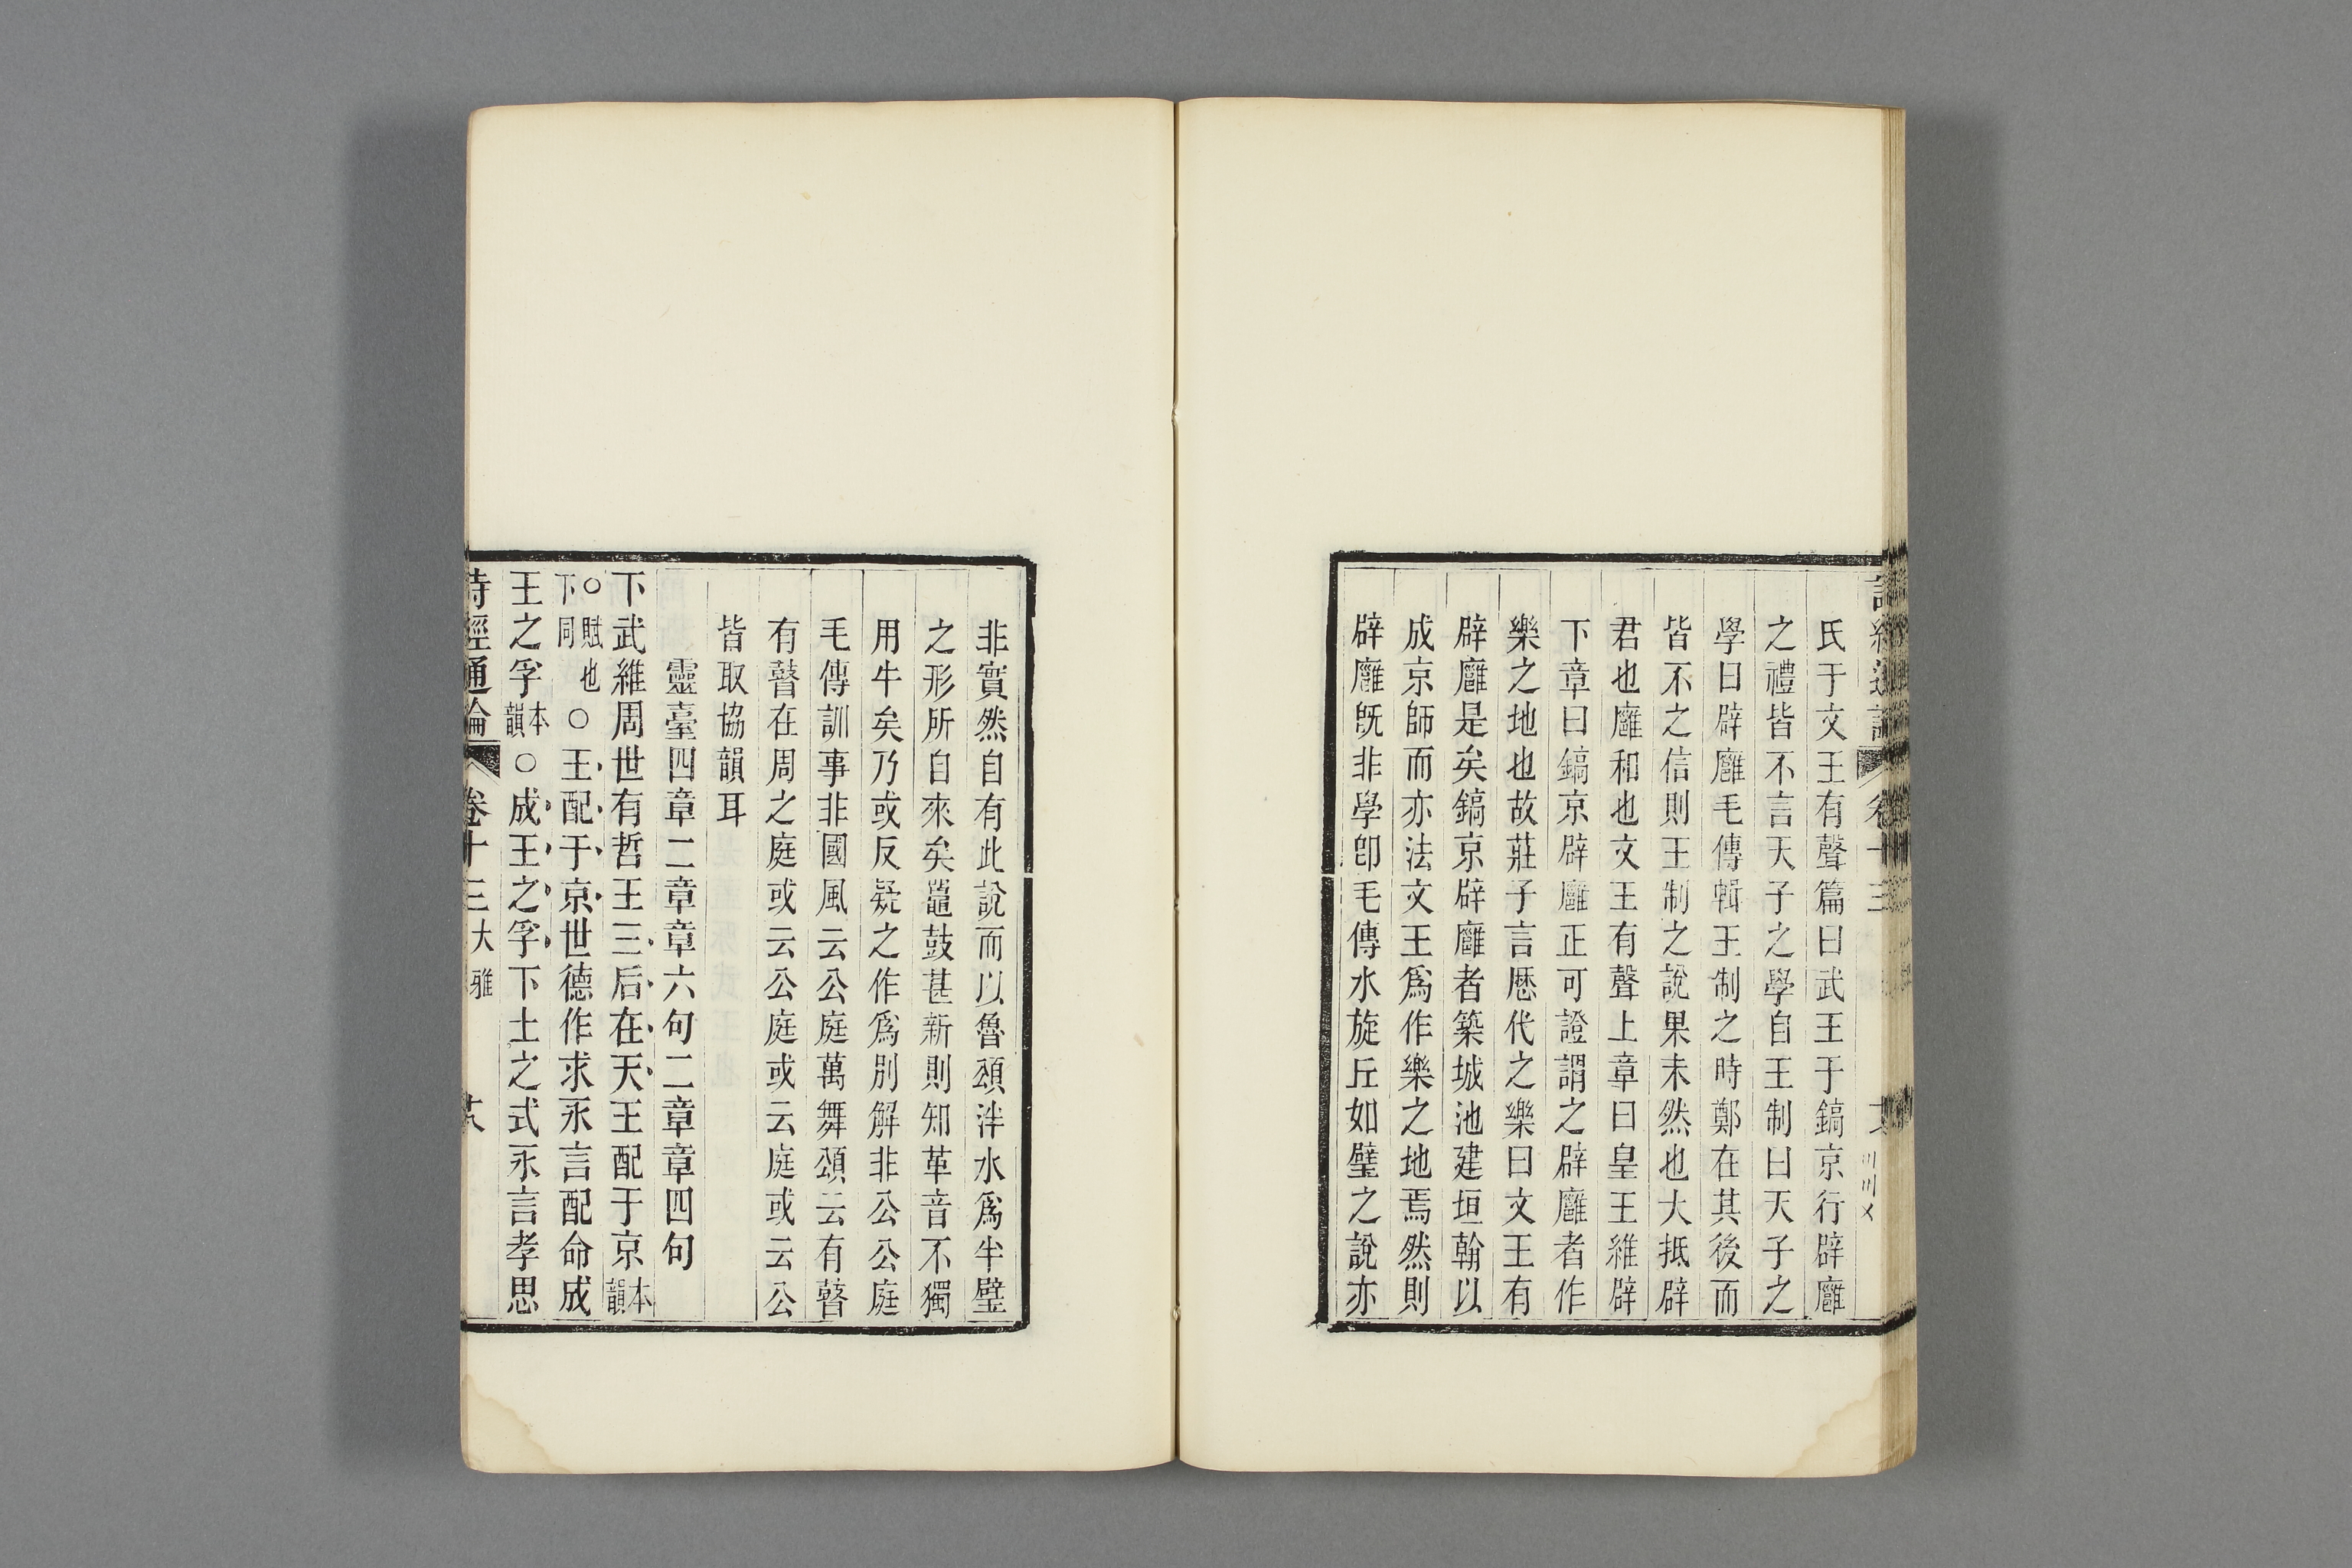 詩經通論 卷十三
氏于文王有聲篇曰武王于鎬京行辟廱
之禮皆不言天子之學自王制曰天子之
學曰辟廱毛傳輯王制之時鄭在其後而
皆不之信則王制之說果未然也大抵辟
君也廱和也文王有聲上章曰皇王維辟
下章曰鎬京辟廱正可證謂之辟廱者作
樂之地也故莊子言厯代之樂曰文王有
辟廱是矣鎬京辟廱者築城池建垣翰以
成京師而亦法文王爲作樂之地焉然則
辟廱旣非學卽毛傳水旋丘如璧之說亦
非實然自有此說而以魯頌泮水爲半璧
之形所自來矣鼉鼓甚新則知革音不獨
用牛矣乃或反疑之作爲別解非公公庭
毛傳訓事非國風云公庭萬舞頌云有瞽
有瞽在周之庭或云公庭或云庭或云公
皆取協韻耳
靈臺四章二章章六句二章章四句
下武維周世有哲王三后在天王配于京本韻
○賦也下同○王配于京世德作求永言配命成
王之孚本韻○成王之孚下土之式永言孝思
詩經通論 卷十三 大雅 十八